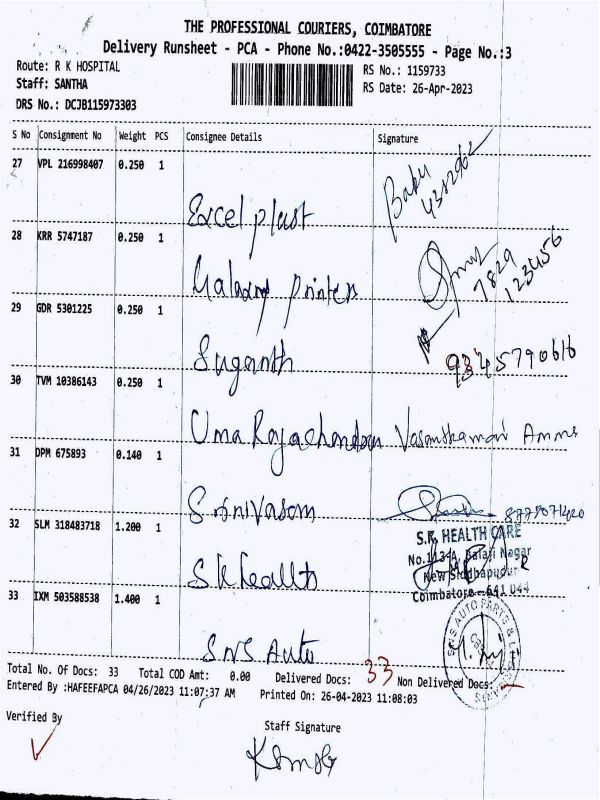 THE PROFESSIONAL COURIERS, COIMBATORE
Delivery Runsheet - PCA - Phone No.:0422-3505555 - Page No.:3
Route: R K HOSPITAL
RS No.: 1159733
Staff: SANTHA
RS Date: 26-Apr-2023
DRS No.: DCJB115973303
S No Consignment No Weight PCS Consignee Details Signature
27 VPL 216998407 0.250 1
Excel plast
Babu
4382962
28 KRR 5747187 0.250 1
Galaxy Printers
7829
123456
29 GDR 5301225 0.250 1
Suganth
9345790616
30 TVM 10386143 0.250 1
Uma Rajachandran Vasanthamani Amma
31 DPM 675893 0.140 1
Srinivasan
32 SLM 318483718 1.200 1
S.K. HEALTH CARE
No.113-A, Balaji Nagar
New Siddhapudur
Coimbatore-641 044
S K Health
33 IXM 503588538 1.400 1
SNS AUTO PARTS &
SNS Auto
Total No. Of Docs: 33 Total COD Amt: 0.00 Delivered Docs: 33 Non Delivered Docs:
Entered By :HAFEEFAPCA 04/26/2023 11:07:37 AM Printed On: 26-04-2023 11:08:03
Verified By
Staff Signature